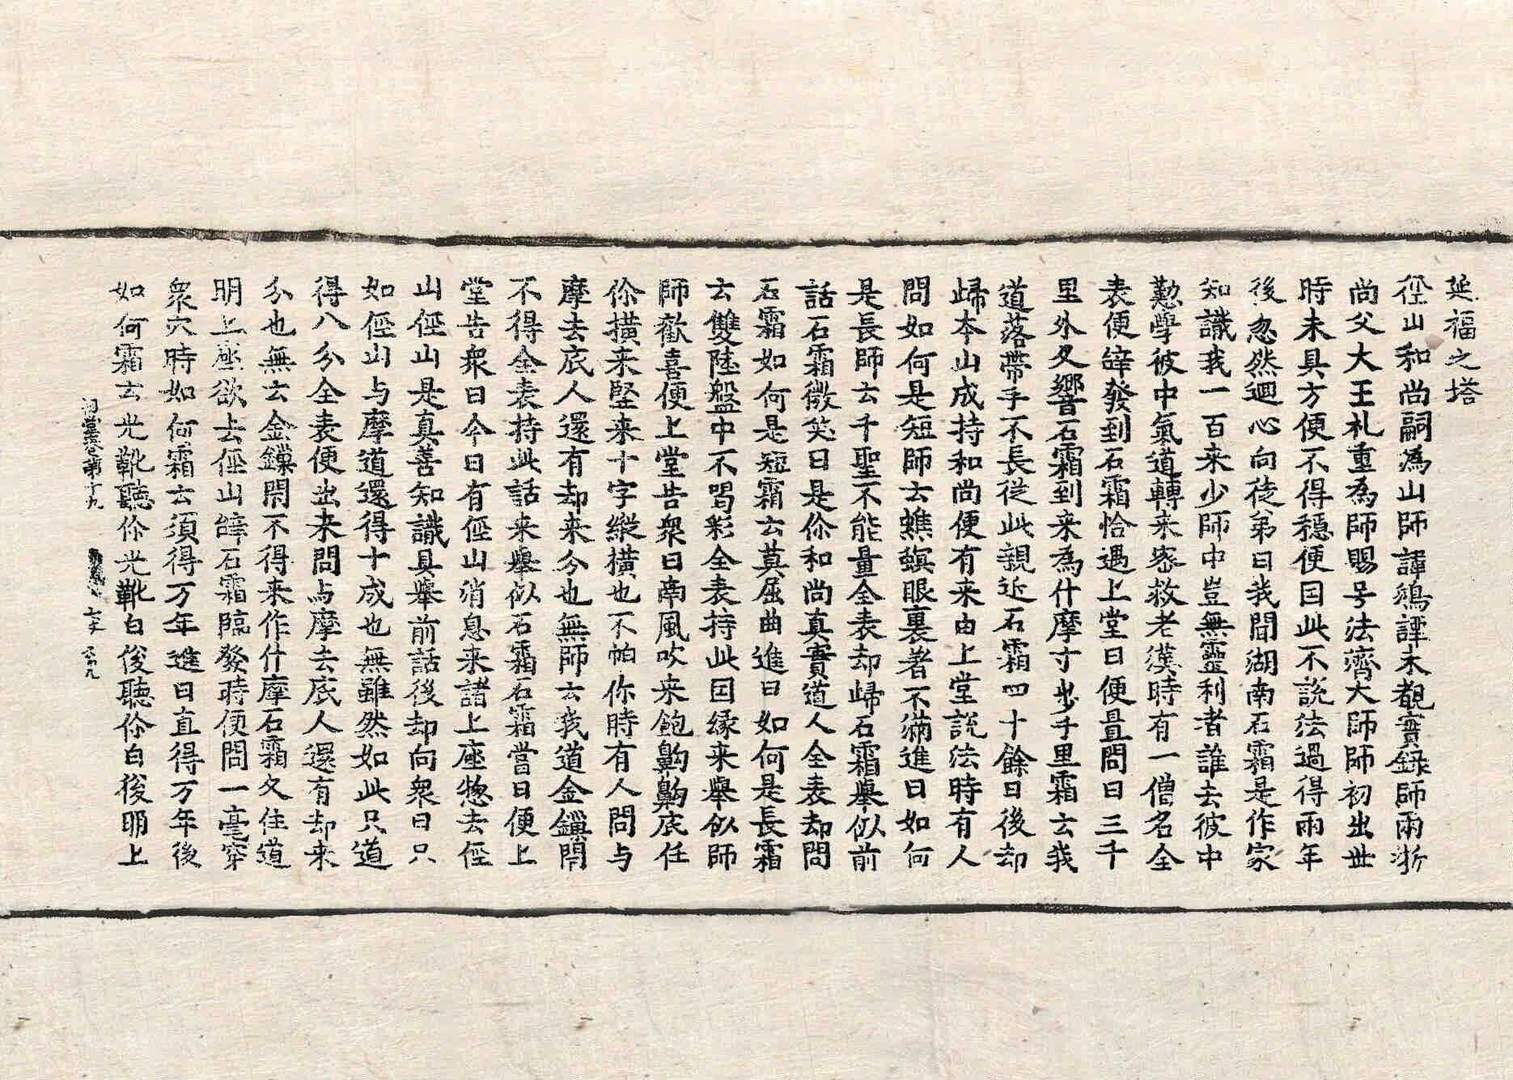 延福之塔
徑山和尚嗣為山師諱鴻諲未覩實錄師兩浙
尚父大王礼重為師賜号法濟大師師初出世
時未具方便不得穩便因此不說法過得兩年
後忽然迴心向徒弟曰我聞湖南石霜是作家
知識我一百来少師中豈無靈利者誰去彼中
懃學彼中氣道轉来密救老漢時有一僧名全
表便辞發到石霜恰遇上堂日便置問曰三千
里外久響石霜到来為什摩寸步千里霜云我
道落帶手不長從此親近石霜四十餘日後却
歸本山成持和尚便有来由上堂說法時有人
問如何是短師云蟭螟眼裏著不滿進曰如何
是長師云千聖不能量全表却歸石霜舉似前
話石霜微笑曰是你和尚真實道人全表却問
石霜如何是短霜云莫屈曲進曰如何是長霜
云雙陸盤中不喝彩全表持此因緣来舉似師
師歡喜便上堂告衆曰南風吹来飽齁齁底任
你橫来竪来十字縱橫也不怕你時有人問与
摩去底人還有却来分也無師云我道金鏁閇
不得全表持此話来舉似石霜石霜當日便上
堂告衆曰今日有俓山消息来諸上座惣去俓
山俓山是真善知識具舉前話後却向衆曰只
如俓山与摩道還得十成也無雖然如此只道
得八分全表便出来問与摩去底人還有却来
分也無云金鏁閇不得来作什摩石霜又住道
明上座欲去俓山辞石霜臨發時便問一毫穿
衆穴時如何霜云須得万年進曰直得万年後
如何霜云光靴聽你光靴白俊聽你白後明上
祖堂卷第十九